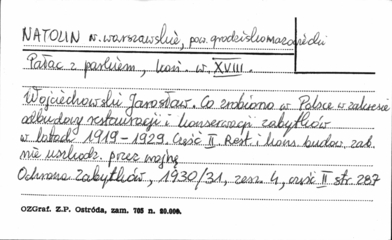 NATOLIN w. warszawskie, pow. grodziskomazowiecki
Pałac z parkiem, kon. w. XVIII.
Wojciechowski Jarosław. Co zrobiono w Polsce w zakresie
odbudowy restauracji i konserwacji zabytków
w latach 1919-1929. Część II. Rest. i kons. budow. zab.
nie uszkodz. przez wojnę
Ochrona Zabytków, 1930/31, zesz. 4, część II str. 287
OZGraf. Z.P. Ostróda, zam. 705 n. 20.000.